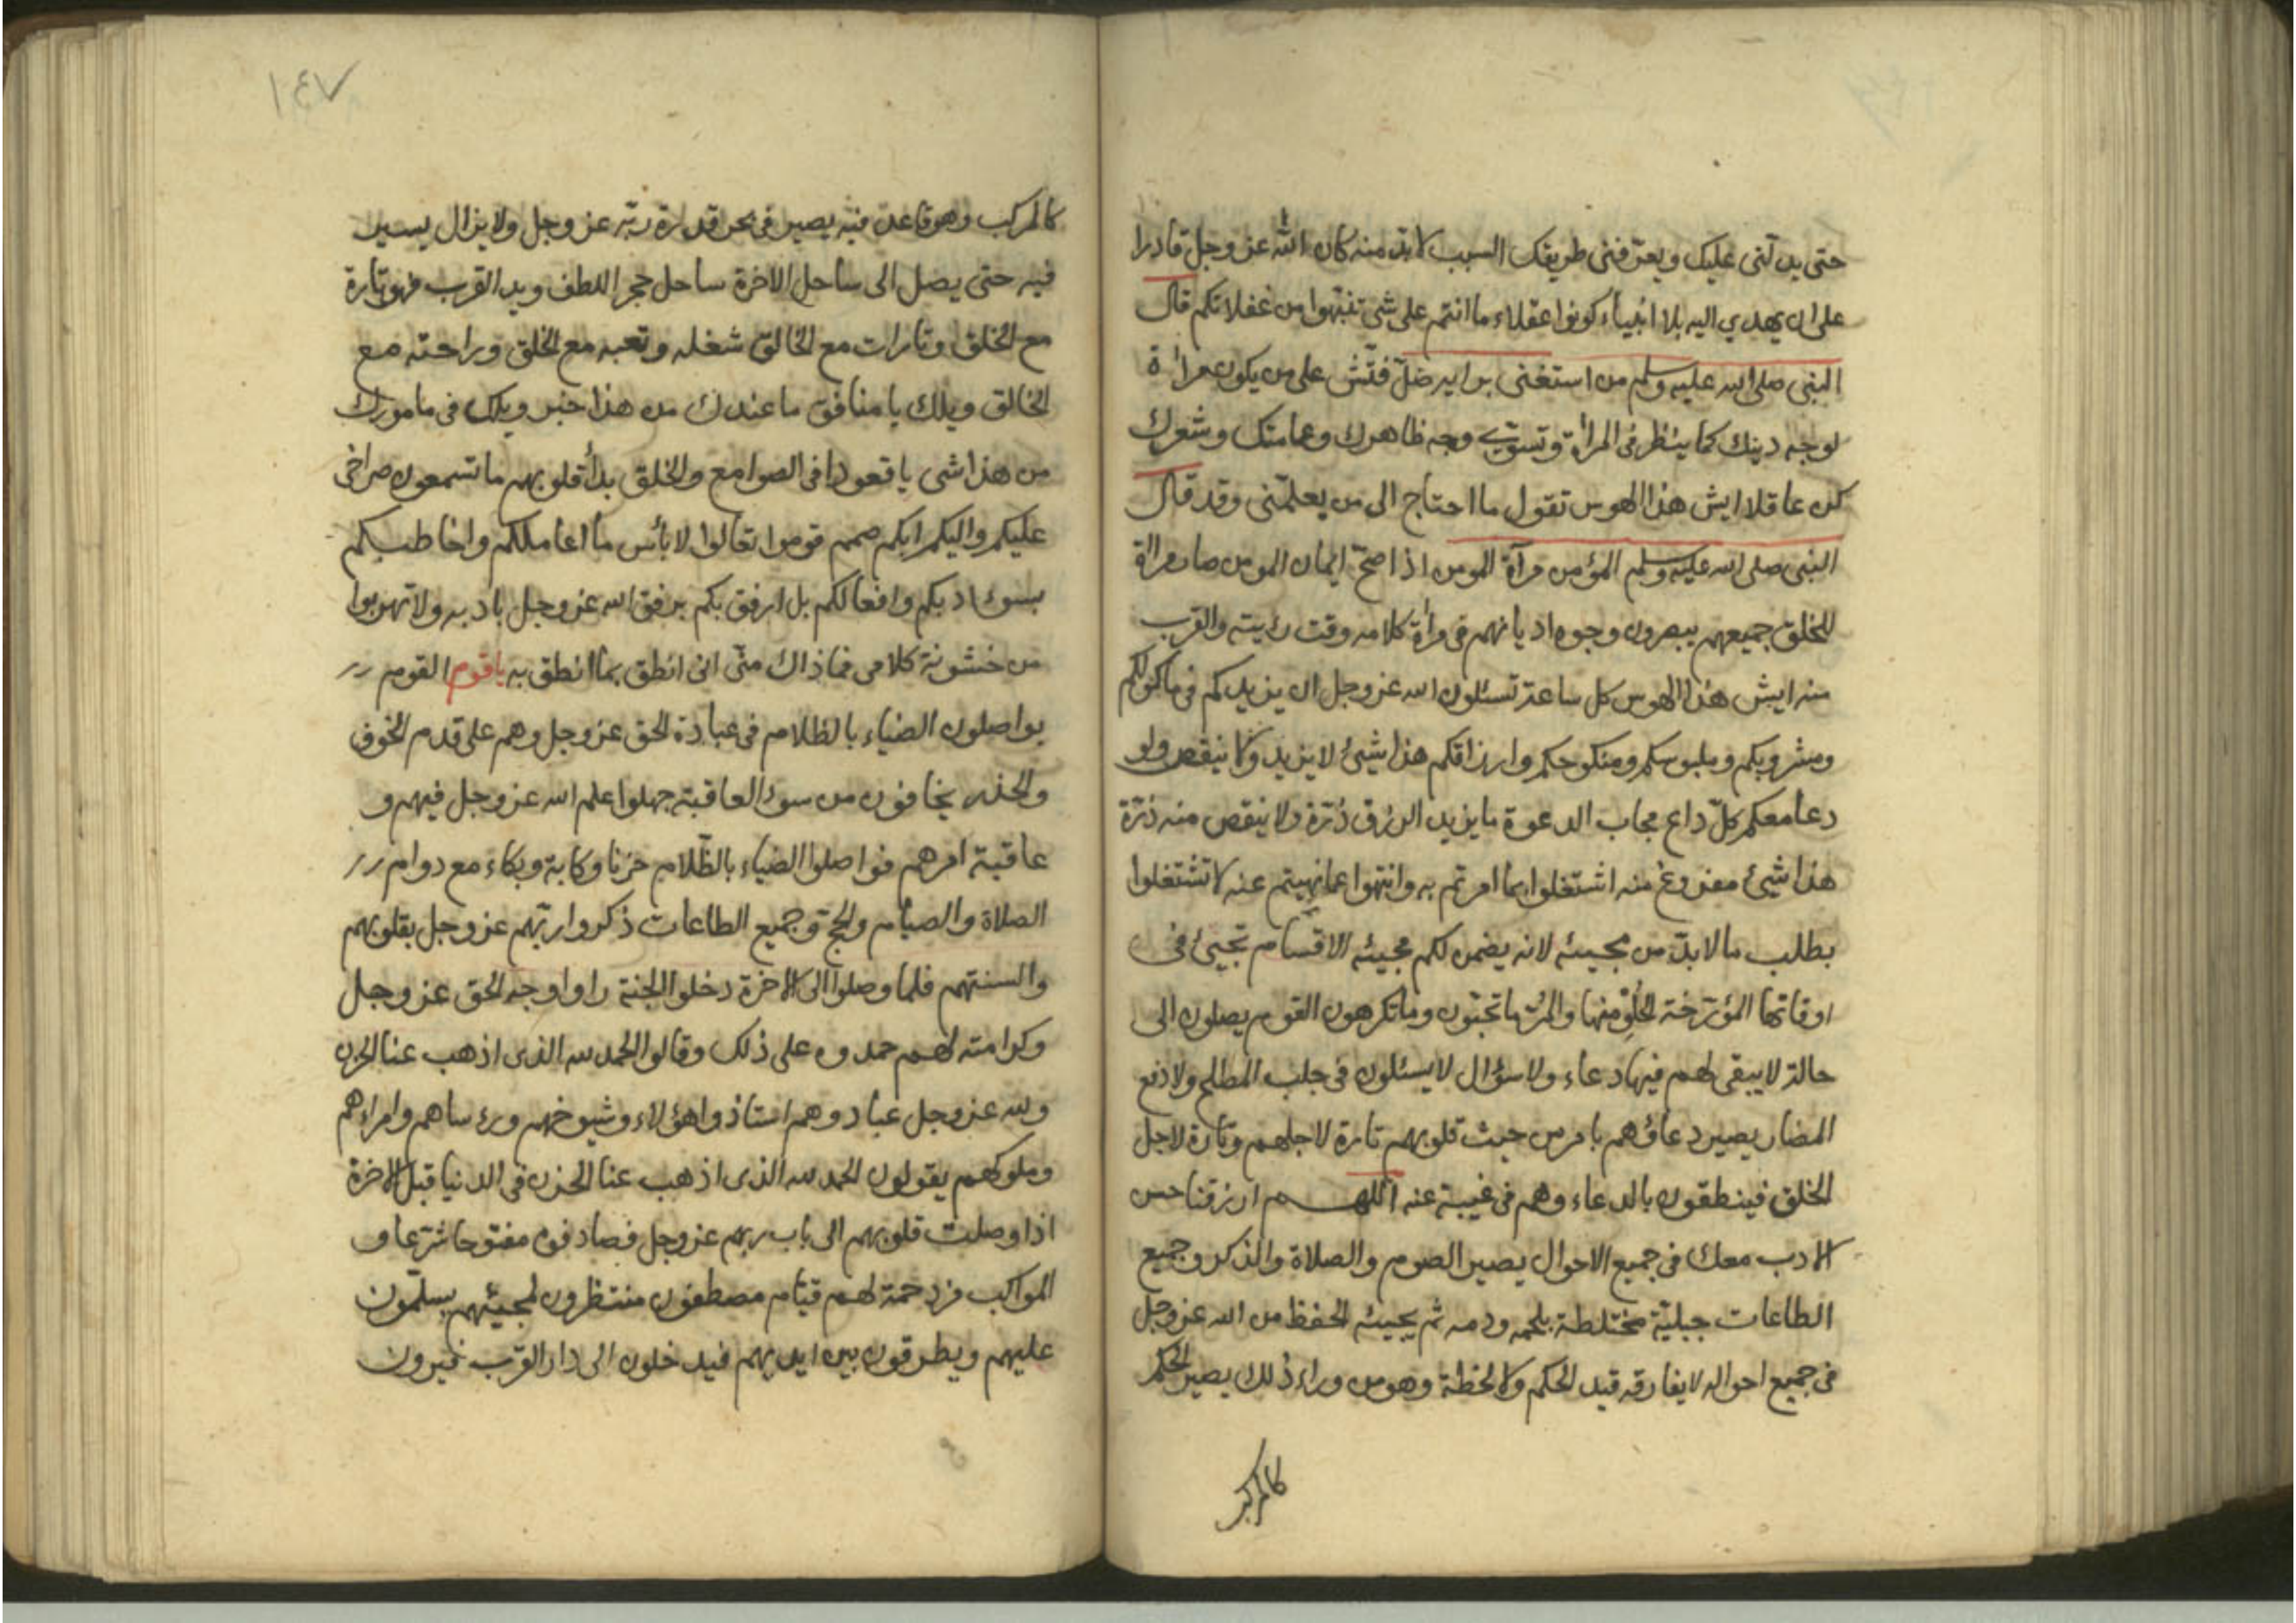 حتى يدلنى عليك ويعرفنى طريقك السبب لابد منه كان الله عز وجل قادرا
على ان يهدي اليه بلا انبياء كونوا عقلاء ما انتم على شى تنبهوا من غفلاتكم قال
النبى صلى الله عليه وسلم من استغنى برايه ضل فتش على من يكون مراٰة
لوجه دينك كما ينظر فى المراٰة وتسوّي وجه ظاهرك وعمامتك وشعرك
كن عاقلا ايش هذا الهوس تقول ما احتاج الى من يعلمنى وقد قال
النبى صلى الله عليه وسلم المؤمن مرآة المومن اذا صحّ ايمان المومن صار مراٰة
للخلق جميعهم يبصرون وجوه اديانهم فى مراٰة كلامه وقت رؤيته والقرب
منه ايش هذا الهوس كل ساعة تسئلون الله عز وجل ان يزيدكم فى ماكولكم
ومشروبكم وملبوسكم ومنكوحكم وارزاقكم هذا شيئ لا يزيد ولا ينقص ولو
دعا معكم كلّ داع مجاب الدعوة ما يزيد الرزق ذرّة ولا ينقص منه ذرّة
هذا شيئ مفروغ منه اشتغلوا بما امرتم به وانتهوا عما نهيتم عنه لا تشتغلوا
بطلب ما لابدّ من مجيئه لانه يضمن لكم مجيئه الاقسام تجيئ فى
اوقاتها المؤرّخة الحلو منها والمرّ ما تحبّون وما تكرهون القوم يصلون الى
حالة لا يبقى لهم فيها دعاء ولا سؤال لا يسئلون فى جلب المصالح ولا دفع
المضار يصير دعاؤهم بامر من حيث قلوبهم تارة لاجلهم وتارة لاجل
الخلق فينطقون بالدعاء وهم فى غيبة عنه اللهم ارزقنا حسن
الادب معك فى جميع الاحوال يصير الصوم والصلاة والذكر وجميع
الطاعات جبليّة مختلطة بلحمه ودمه ثم يجيئه الحفظ من الله عز وجل
فى جميع احواله لا يفارقه قيد الحكم ولا لحظة وهو من وراء ذلك يصير الحكم
كالمركب
١٤٧
كالمركب وهو قاعد فيه يصير فى بحر قدرة ربّه عز وجل ولا يزال يسير
فيه حتى يصل الى ساحل الاخرة ساحل حجر اللطف ويد القرب فهو تارة
مع الخلق وتارات مع الخالق شغله وتعبه مع الخلق وراحته مع
الخالق ويلك يا منافق ما عندك من هذا خبر ويلك فى مامورك
من هذا شى يا قعودا فى الصوامع والخلق بدأ قلوبهم ما تسمعون صراخى
عليكم واليكم ابكم صمم قوموا تعالوا لا بأس ما اعاملكم واخاطبكم
بسوء ادبكم وافعالكم بل ارفق بكم برفق الله عز وجل بادبه ولا تهربوا
من خشونة كلامى فما ذاك منّى انى انطق بما انطق به يا قوم القوم
يواصلون الضياء بالظلام فى عبادة الحق عز وجل وهم على قدم الخوف
والحذر يخافون من سوء العاقبة جهلوا علم الله عز وجل فيهم و
عاقبة امرهم فواصلوا الضياء بالظّلام حزنا وكابة وبكاء مع دوام
الصلاة والصيام والحج وجميع الطاعات ذكروا ربّهم عز وجل بقلوبهم
والسنتهم فلما وصلوا الى الاخرة دخلوا الجنة راوا وجه الحق عز وجل
وكرامته لهم حمدوه على ذلك وقالوا الحمد لله الذى اذهب عنا الحزن
ولله عز وجل عباد وهم استاذوا هؤلاء وشيوخهم ورءساهم وامراءهم
وملوكهم يقولون الحمد لله الذى اذهب عنا الحزن فى الدنيا قبل الاخرة
اذا وصلت قلوبهم الى باب ربهم عز وجل فصادفوه مفتوحا شترعا و
المواكب مزدحمة لهم قيام مصطفون منتظرون لمجيئهم يسلّمون
عليهم ويطرقون بين ايديهم فيدخلون الى دار القرب فيرون